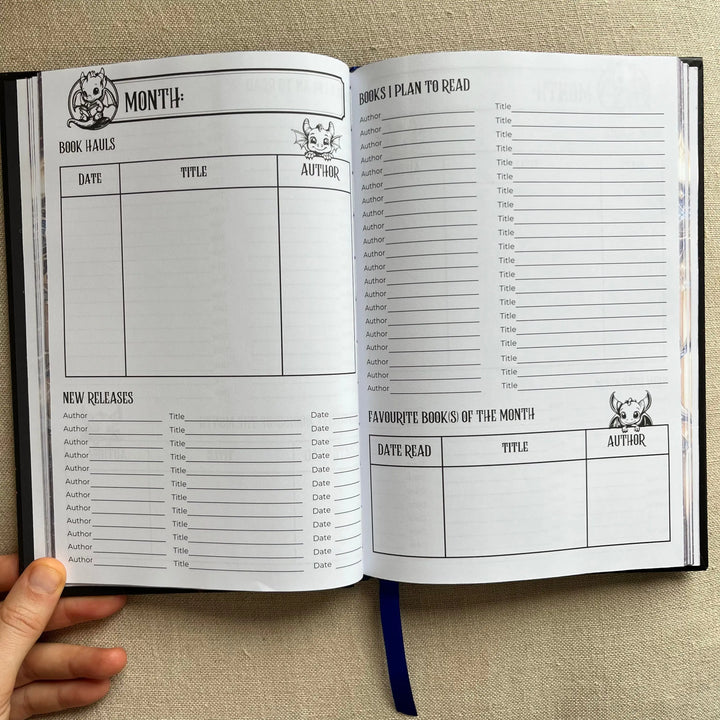 MONTH:
BOOK HAULS
DATE TITLE AUTHOR
NEW RELEASES
Author Title Date
Author Title Date
Author Title Date
Author Title Date
Author Title Date
Author Title Date
Author Title Date
Author Title Date
Author Title Date
Author Title Date
Author Title Date
Author Title Date
BOOKS I PLAN TO READ
Author Title
Author Title
Author Title
Author Title
Author Title
Author Title
Author Title
Author Title
Author Title
Author Title
Author Title
Author Title
Author Title
Author Title
Author Title
Author Title
Author Title
Author Title
Author Title
Author Title
Author Title
FAVOURITE BOOK(S) OF THE MONTH
DATE READ TITLE AUTHOR